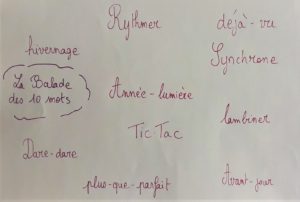 Rythmer
déjà-vu
hivernage
Synchrone
La Balade
des 10 mots
Année-lumière
lambiner
Tic-Tac
Dare-dare
plus-que-parfait
Avant-jour